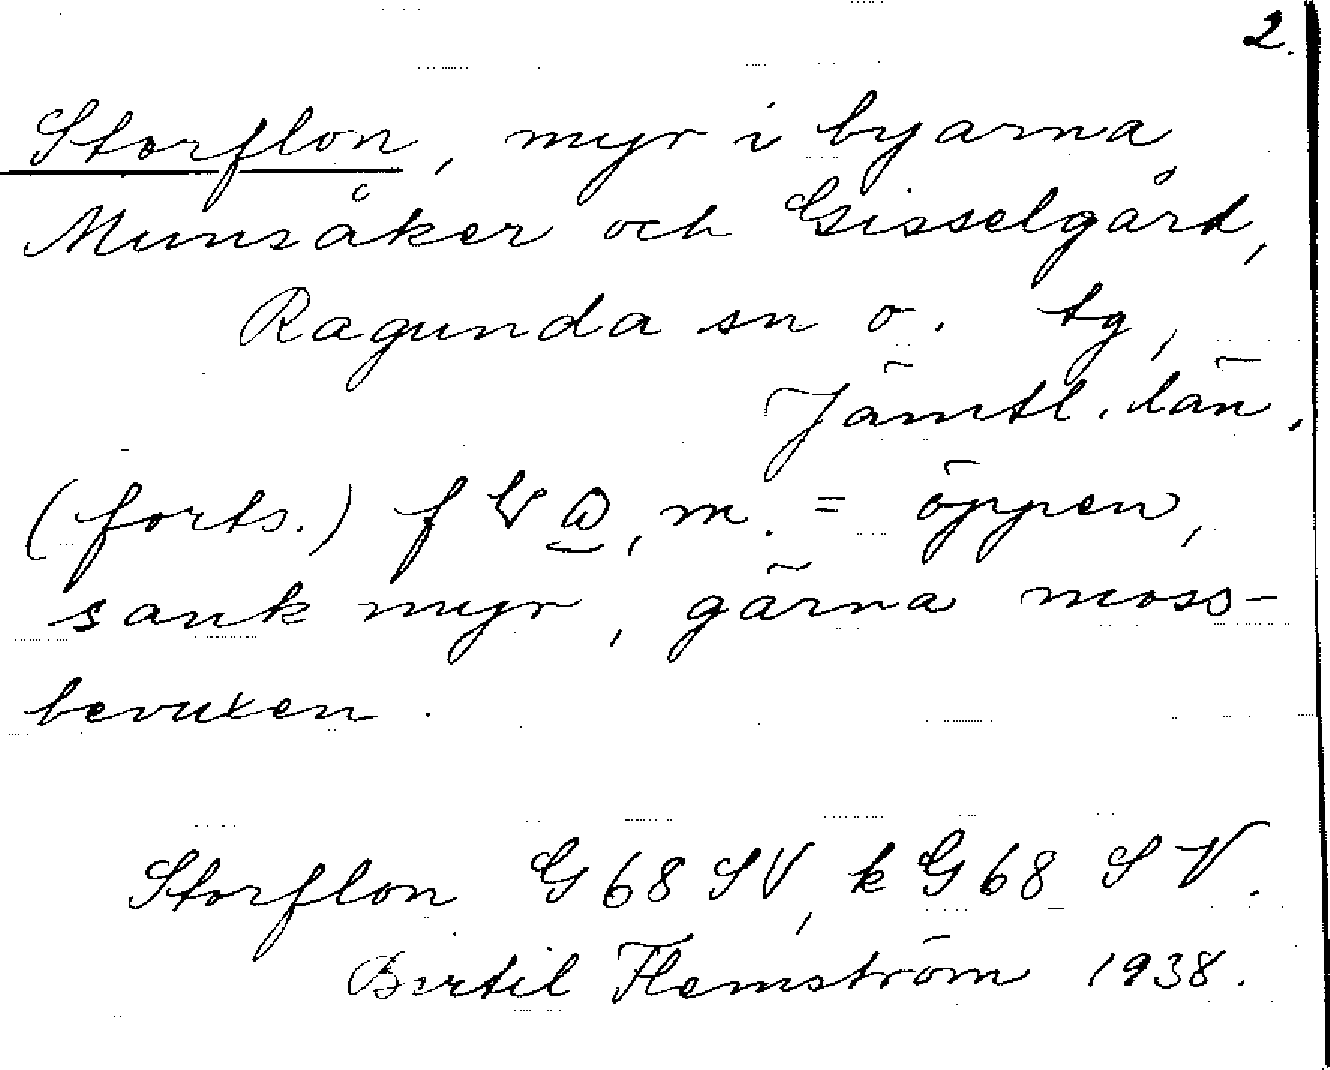 2.
Storflon, myr i byarna
Munsåker och Gisselgård,
Ragunda sn o. tg,
Jämtl. län.
(forts.) f m. = öppen,
sank myr, gärna moss-
bevuxen.
Storflon G68 SV, k G68 SV.
Bertil Flemström 1938.